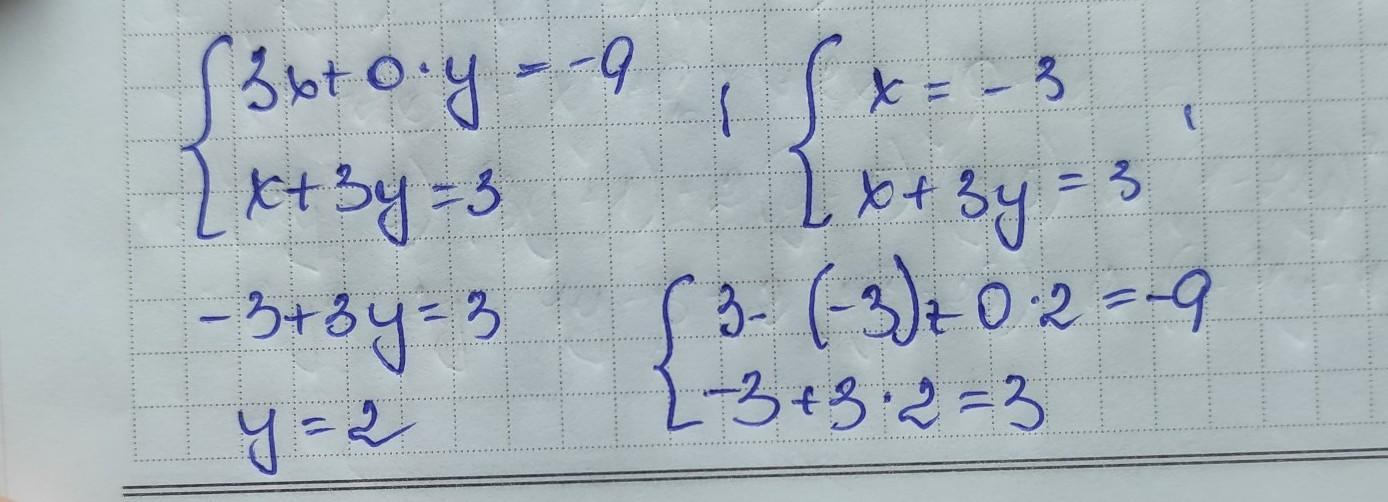 { 3x + 0 · y = -9 , { x = -3 ,
x + 3y = 3 x + 3y = 3
-3 + 3y = 3 { 3 · (-3) + 0 · 2 = -9
y = 2 -3 + 3 · 2 = 3